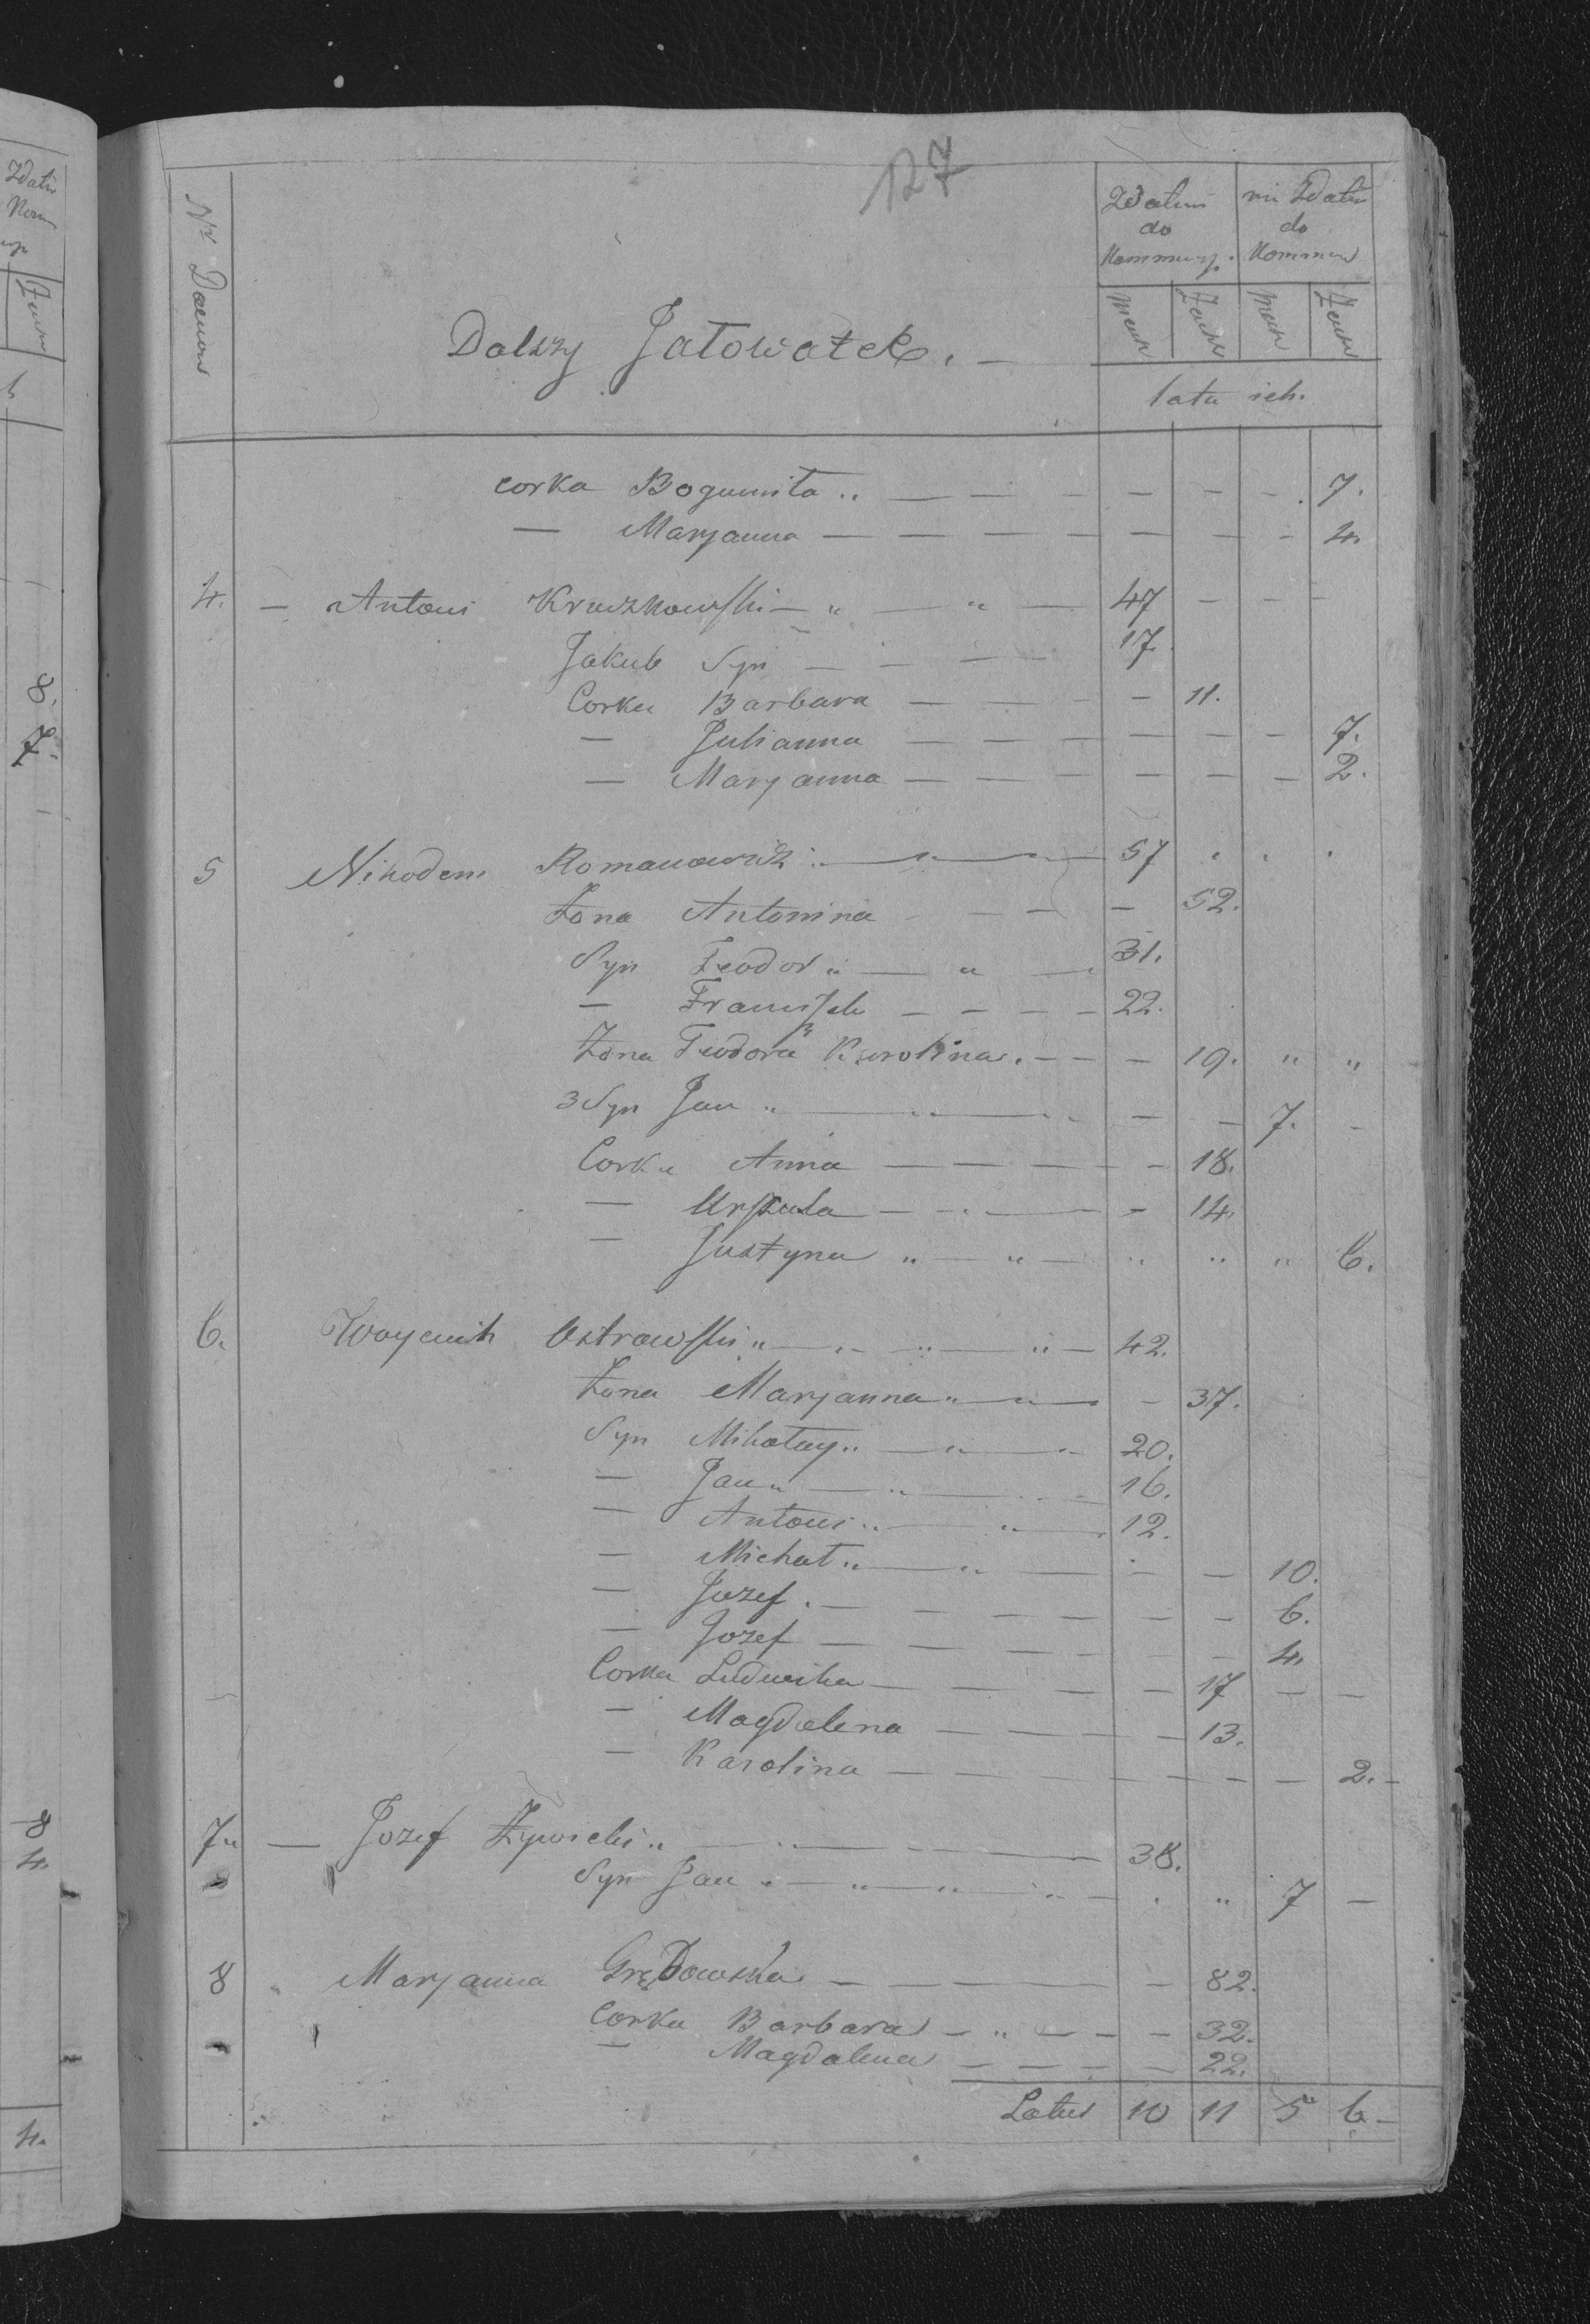 127
Nr Domow
Dalszy Jatowatek. —
Zdatni do Kommuny. | nie Zdatni do Kommun
Mezk | Zensk | Mezk | Zensk
lata ich.
corka Bogumiła 7.
— Maryanna 4.
4. — Antoni Kruszkowski 47
Jakub Syn 17
Corka Barbara 11.
— Julianna 7.
— Maryanna 2.
5 Nikodem Romanowicz 57
Zona Antonina 52.
Syn Teodor 31.
— Franciszek 22.
Zona Teodora Karolina 19.
3 Syn Jan 7.
Corka Anna 18.
— Urszula 14.
— Justyna 6.
6. Woyciech Ostrowski 42.
Zona Maryanna 37.
Syn Mikołay 20.
— Jan 16.
— Antoni 12.
— Michał 10.
— Jozef 6.
— Jozef 4.
Corka Ludwika 17
— Magdalena 13.
— Karolina 2.
7 — Jozef Zywicki 38.
Syn Jan 7
8 Maryanna Grędowska 82.
Corka Barbara 32.
— Magdalena 22.
Latus 10 11 5 6
8.
7.
8
4.
4.